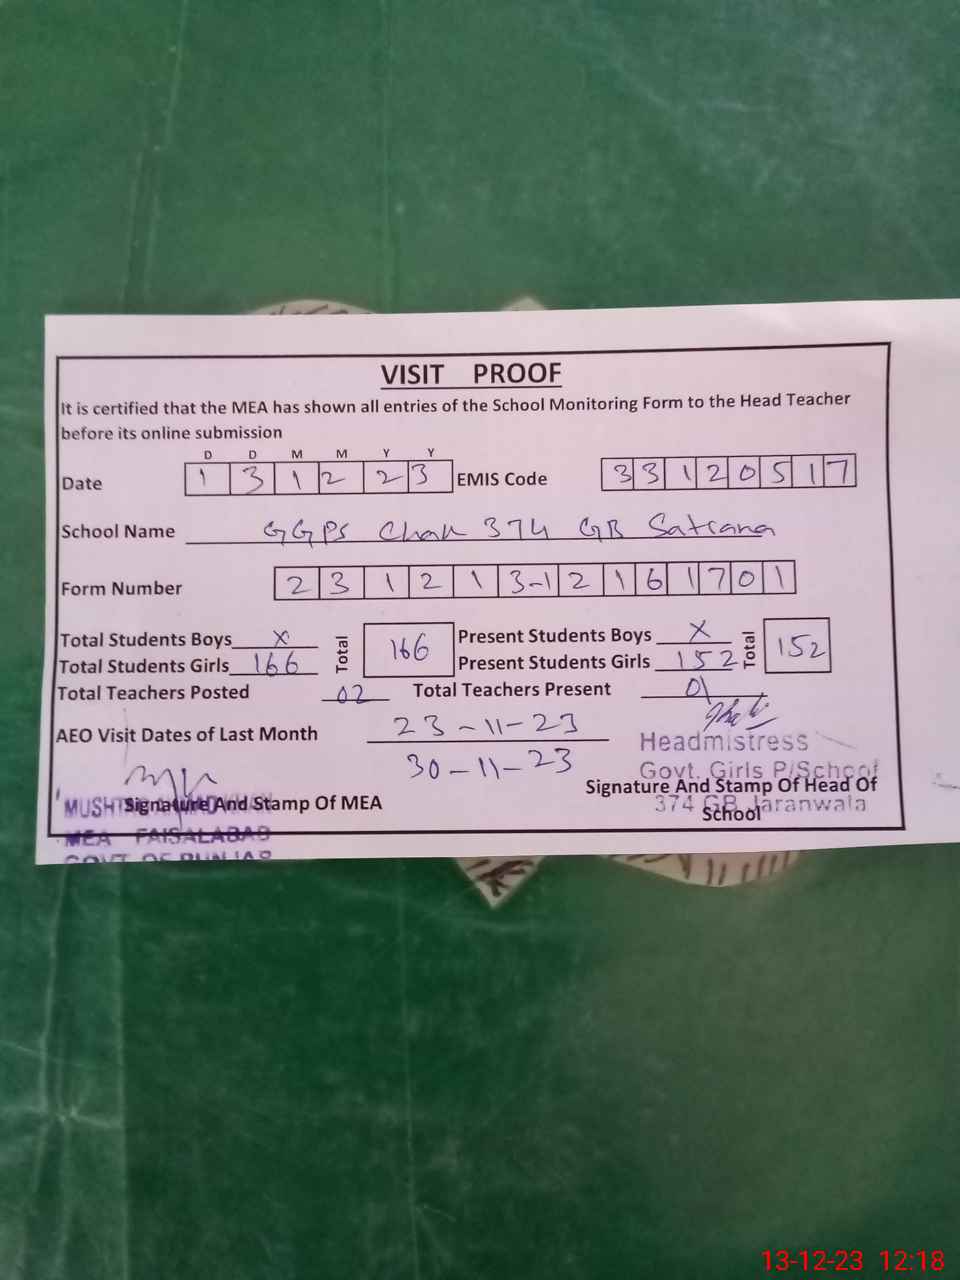 VISIT PROOF
It is certified that the MEA has shown all entries of the School Monitoring Form to the Head Teacher
before its online submission
D D M M Y Y
Date 1 3 1 2 2 3 EMIS Code 3 3 1 2 0 5 1 7
School Name GGPS Chak 374 GB Satiana
Form Number 2 3 1 2 1 3-1 2 1 6 1 7 0 1
Total Students Boys X Total 166 Present Students Boys X Total 152
Total Students Girls 166 Present Students Girls 152
Total Teachers Posted 02 Total Teachers Present 01
AEO Visit Dates of Last Month 23-11-23
30-11-23
Headmistress
Govt. Girls P/School
374 GB Jaranwala
Signature And Stamp Of MEA
Signature And Stamp Of Head Of
School
MEA FAISALABAD
GOVT OF PUNJAB
13-12-23 12:18